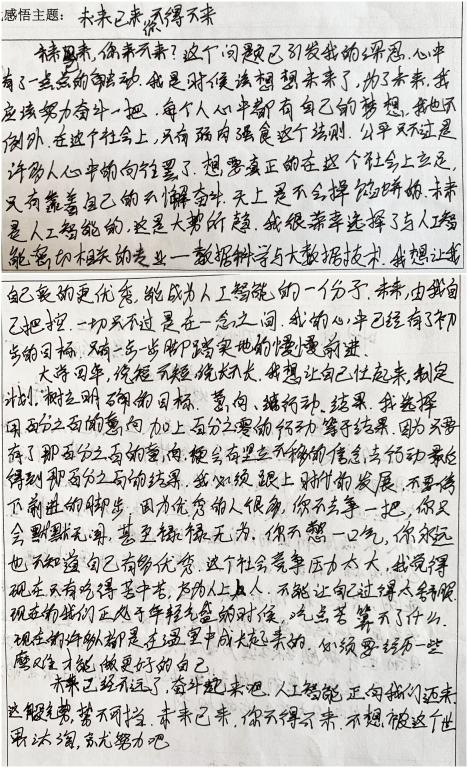 感悟主题：未来已来 你不得不来
未来已来，你来不来？这个问题已引发我的深思。心中
有了一点点的触动。我是时候该想想未来了，为了未来，我
应该努力奋斗一把，每个人心中都有自己的梦想，我也不
例外。在这个社会上，只有弱肉强食这个法则。公平只不过是
许多人心中的向往罢了。想要真正的在这个社会上立足，
只有靠着自己的不懈奋斗。天上是不会掉馅饼的。未来
是人工智能的，这是大势所趋。我很荣幸选择了与人工智
能密切相关的专业——数据科学与大数据技术。我想让我
自己变的更优秀，能成为人工智能的一个分子。未来，由我自
己把控。一切只不过是在一念之间。我的心中已经有了初
步的目标，只有一步一步脚踏实地的慢慢前进。
大学四年，说短不短，说长不长。我想让自己忙起来，制定
计划，树立明确的目标。意向、行动、结果。我选择
用百分之百的意向加上百分之零的行动等于结果。因为只要
有了那百分之百的意向，便会有坚立不移的信念去行动最后
得到那百分之百的结果。我必须跟上时代的发展，不要停
下前进的脚步。因为优秀的人很多，你不去争一把，你只
会默默无闻，甚至碌碌无为。你不憋一口气，你永远
也不知道自己有多优秀。这个社会竞争压力太大，我觉得
现在只有吃得苦中苦，方为人上人。不能让自己过得太舒服
现在的我们正处于年轻气盛的时候，吃点苦算不了什么。
现在的许多都是在温室中成长起来的。必须要经历一些
磨难才能做更好的自己
未来已经不远了，奋斗起来吧。人工智能正向我们迈来
这般光势，势不可挡。未来已来，你不得不来。不想被这个世
界汰淘，就努力吧